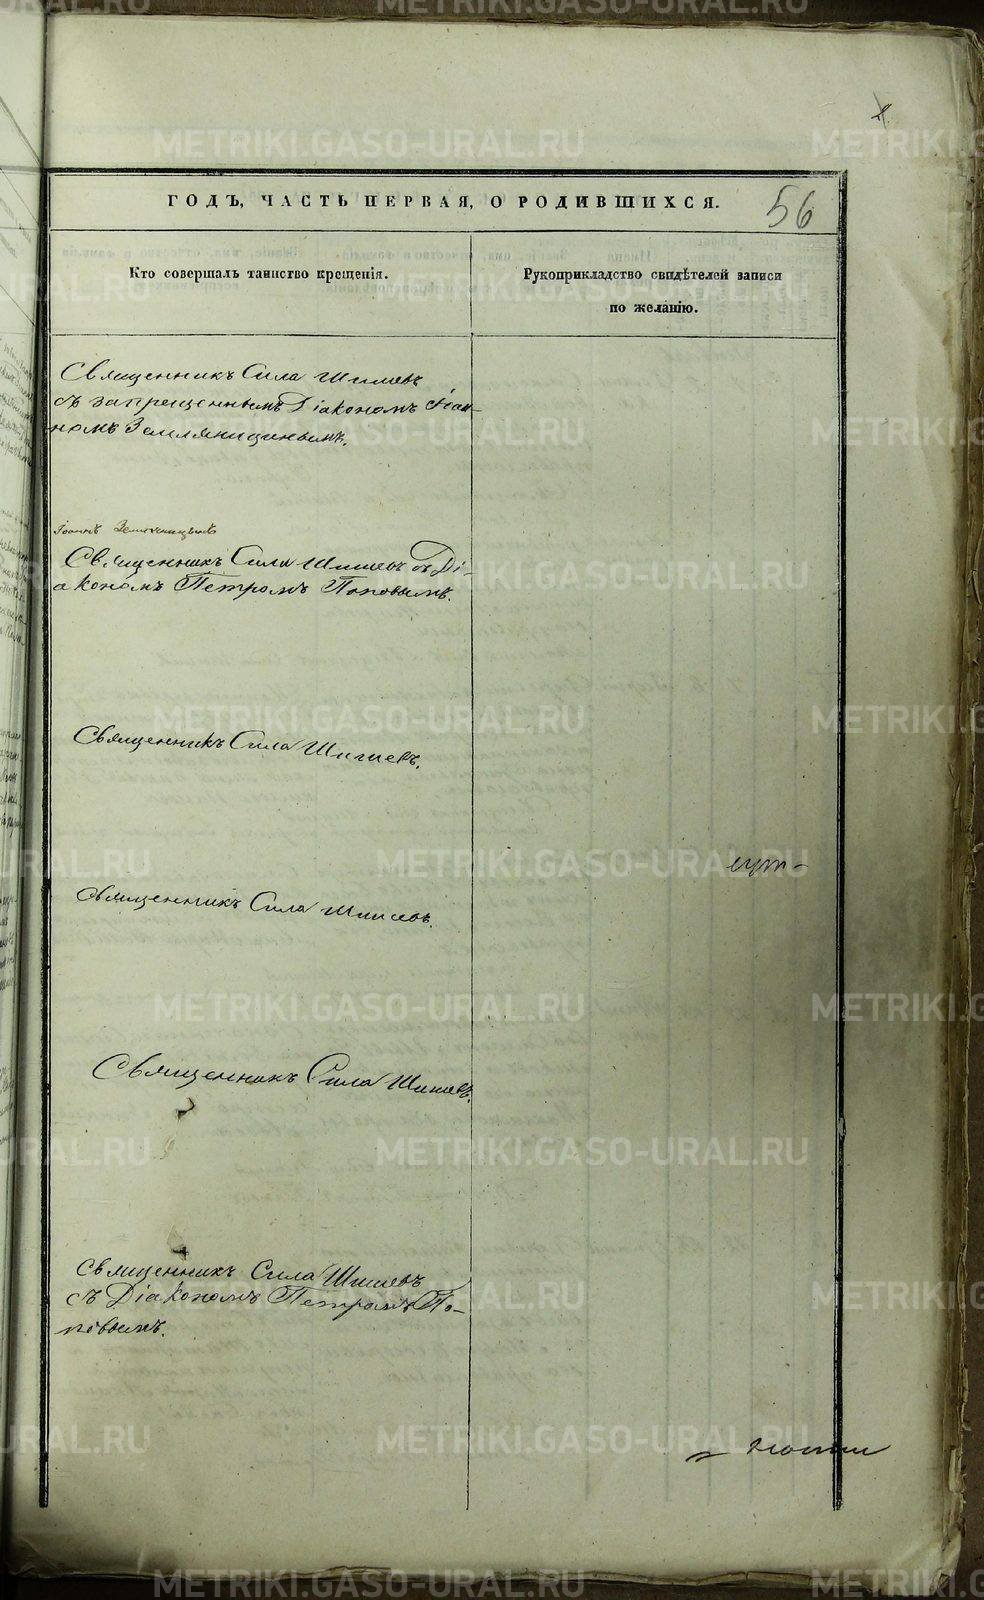 ГОДЪ, ЧАСТЬ ПЕРВАЯ, О РОДИВШИХСЯ.
56
Кто совершалъ таинство крещенія.
Рукоприкладство свидѣтелей записи
по желанію.
Священникъ Сила Шишевъ
съ запрещеннымъ Діакономъ Іоан-
номъ Земляницинымъ.
Іоаннъ Земляницынъ
Священникъ Сила Шишевъ съ Ді-
акономъ Петромъ Поповымъ.
Священникъ Сила Шишевъ.
Священникъ Сила Шишевъ.
Священникъ Сила Шишевъ.
Священникъ Сила Шишевъ
съ Діакономъ Петромъ По-
повымъ.
METRIKI.GASO-URAL.RU